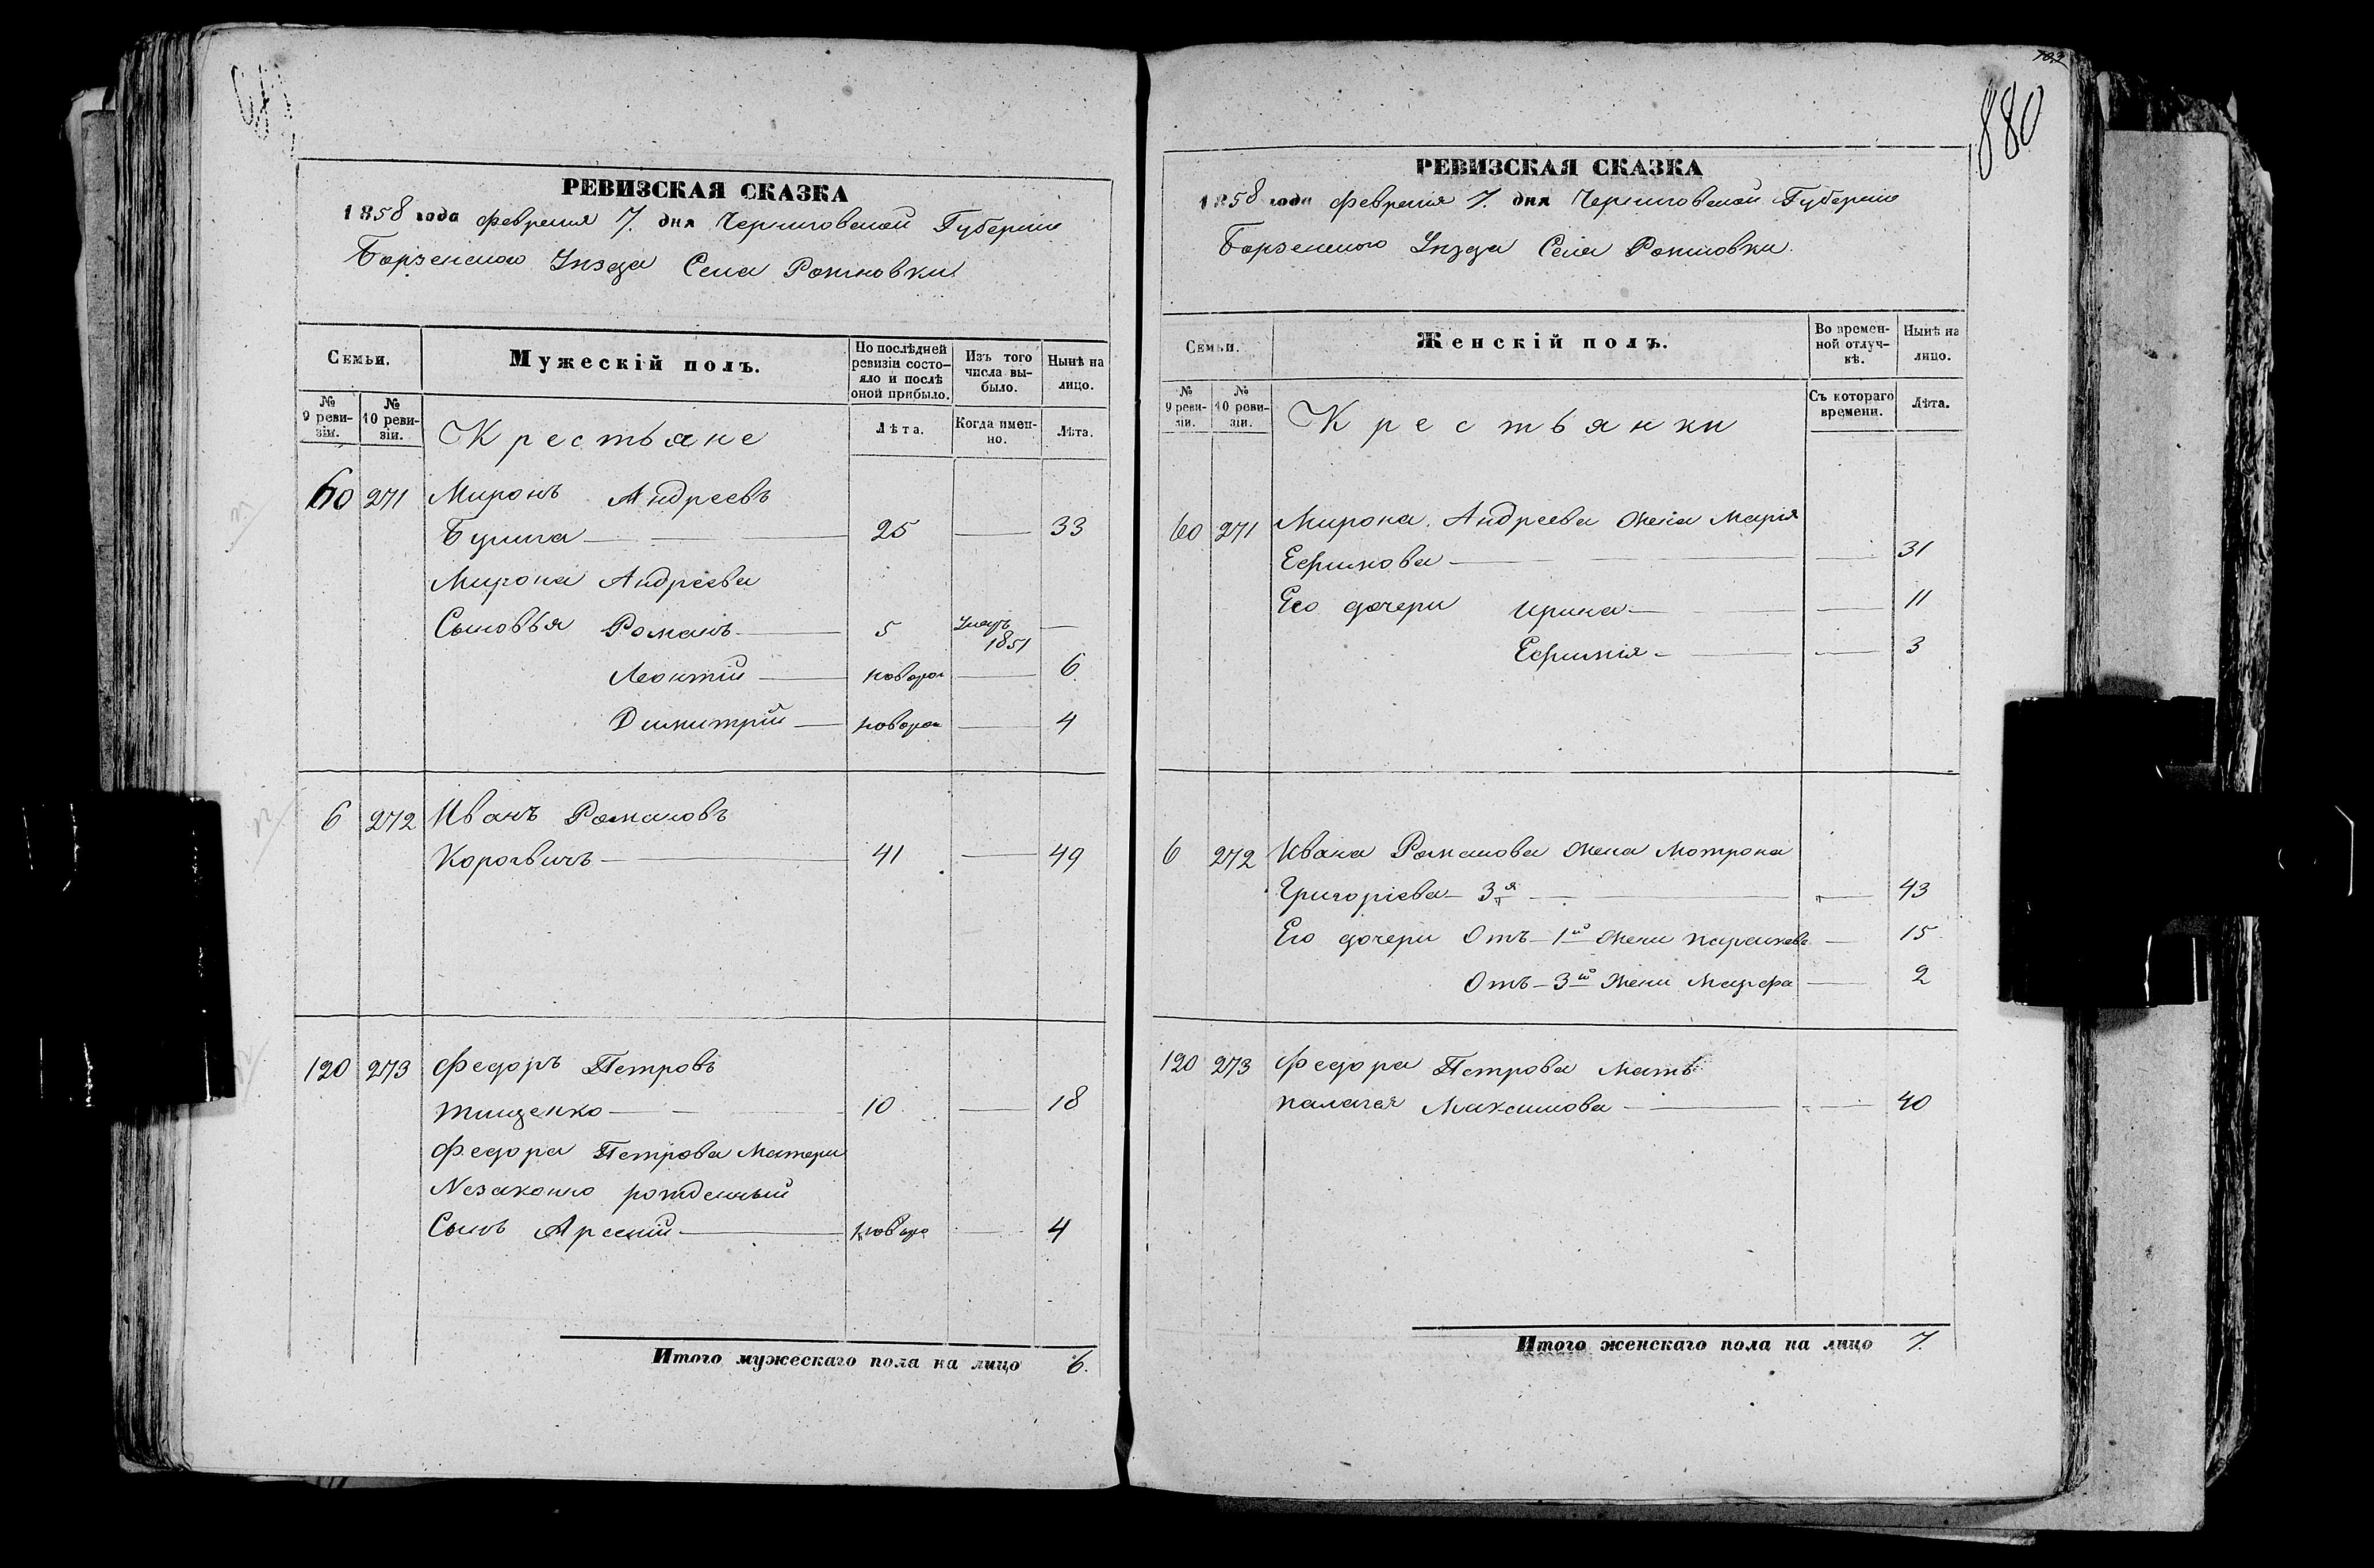 РЕВИЗСКАЯ СКАЗКА
1858 года февраля 7. дня Черниговской Губерніи
Борзенского Уезда Села
Семьи.
Мужескій полъ.
По послѣдней ревизіи состояло и послѣ оной прибыло.
Изъ того числа выбыло.
Нынѣ на лицо.
№ 9 ревизіи.
№ 10 ревизіи.
Крестьяне
Лѣта.
Когда именно.
Лѣта.
60 271 Миронъ Андреевъ
25 33
Мирона Андреева
Сыновья Романъ 5 1851
Леонтій новорож 6
Димитрій новорож 4
6 272 Иванъ Романовъ
41 49
120 273 Федоръ Петровъ
Тищенко 10 18
Федора Петрова Матери
Незаконно рожденный
Сынъ Арсеній новоро 4
Итого мужескаго пола на лицо 6.
783
880
РЕВИЗСКАЯ СКАЗКА
1858 года февраля 7. дня Черниговской Губерніи
Борзенского Уезда Села
Семьи.
Женскій полъ.
Во временной отлучкѣ.
Нынѣ на лицо.
№ 9 ревизіи.
№ 10 ревизіи.
Крестьянки
Съ котораго времени.
Лѣта.
60 271 Мирона Андреева жена Марія
Ефимова 31
Его дочери Ирина 11
Ефимія 3
6 272 Ивана Романова жена Мотрона
Григоріева 3я 43
Его дочери Отъ 1й жени 15
Отъ 3й жени Марфа 2
120 273 Федора Петрова Мать
Палагея Максимова 40
Итого женскаго пола на лицо 7.